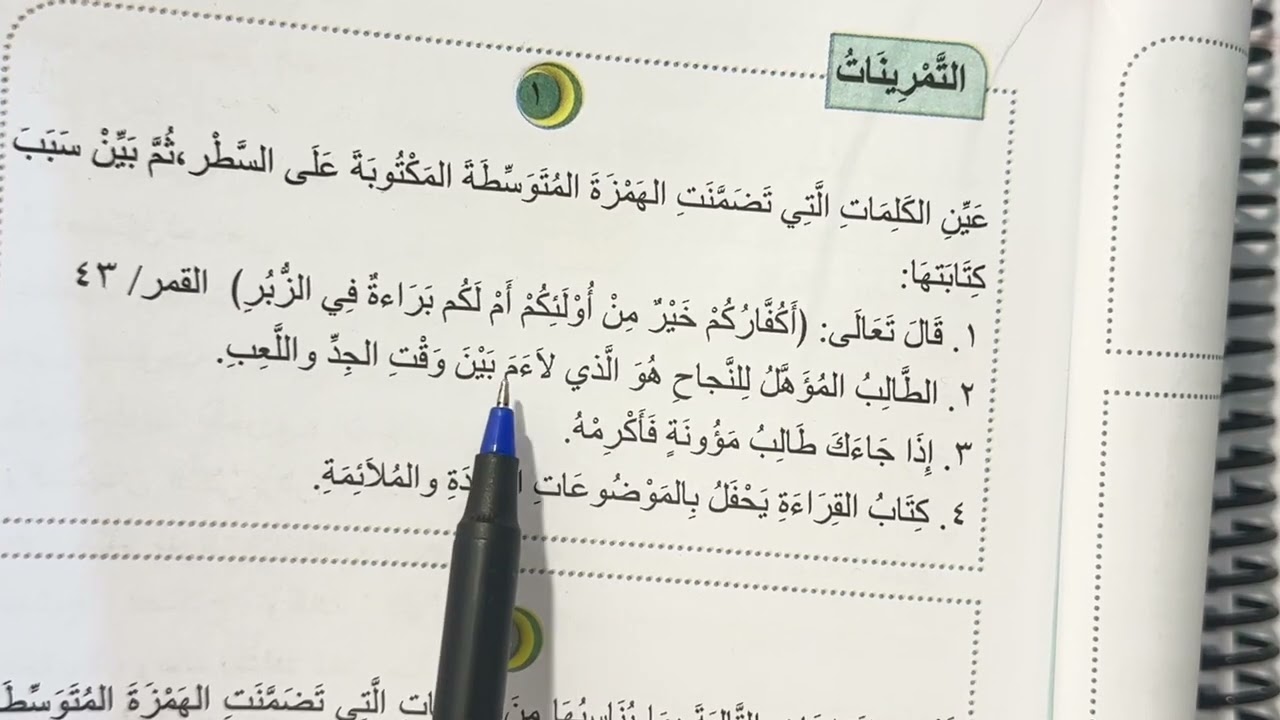 التَّمْرِينَاتُ
١
عَيِّنِ الكَلِمَاتِ الَّتِي تَضَمَّنَتِ الهَمْزَةَ المُتَوَسِّطَةَ المَكْتُوبَةَ عَلَى السَّطْر،ثُمَّ بَيِّنْ سَبَبَ
كِتَابَتهَا:
١. قَالَ تَعَالَى: (أَكُفَّارُكُمْ خَيْرٌ مِنْ أُوْلَئِكُمْ أَمْ لَكُم بَرَاءةٌ فِي الزُّبُرِ) القمر/ ٤٣
٢. الطَّالِبُ المُؤَهَّلُ لِلنَّجاحِ هُوَ الَّذي لاَءَمَ بَيْنَ وَقْتِ الجِدِّ واللَّعِبِ.
٣. إِذَا جَاءَكَ طَالِبُ مَؤُونَةٍ فَأَكْرِمْهُ.
٤. كِتَابُ القِرَاءَةِ يَحْفَلُ بِالمَوْضُوعَاتِ والمُلاَئِمَةِ.
الَّتِي تَضَمَّنَتِ الهَمْزَةَ المُتَوَسِّطَةَ